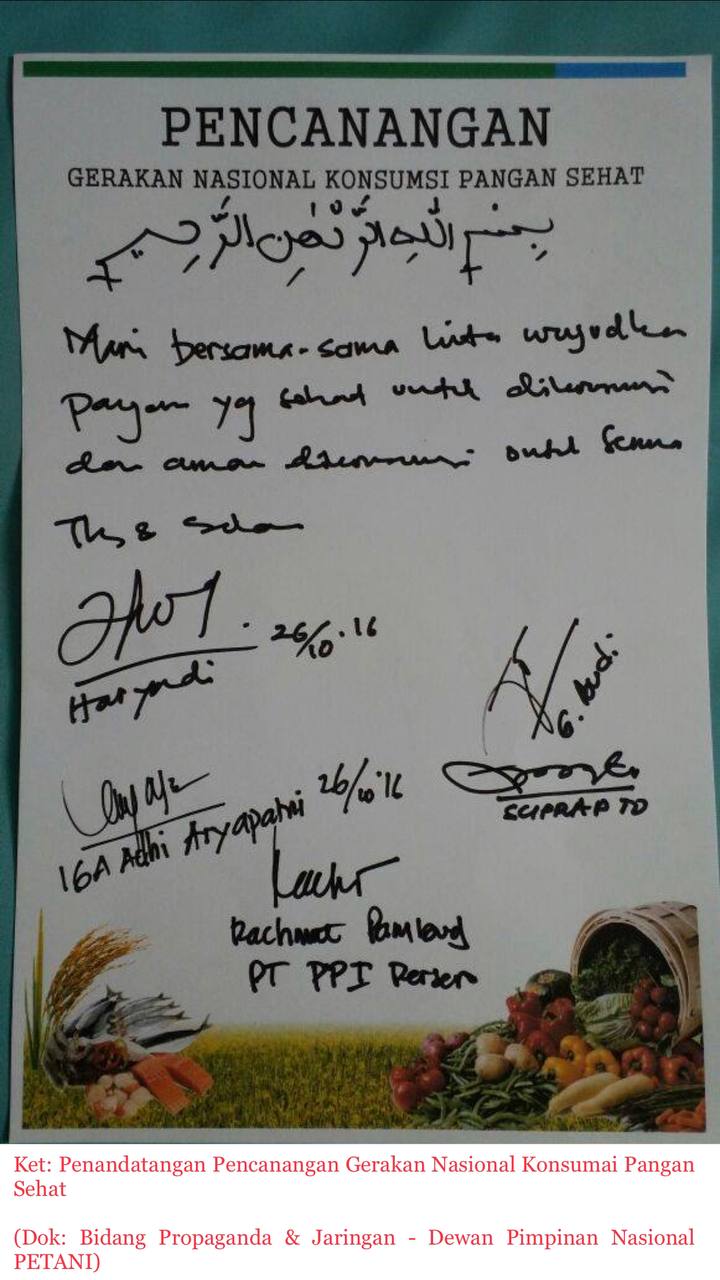 PENCANANGAN
GERAKAN NASIONAL KONSUMSI PANGAN SEHAT
بِسْمِ اللّٰهِ الرَّحْمٰنِ الرَّحِيمِ
Mari bersama-sama kita wujudkan
pangan yg sehat untuk dikonsumsi
dan aman dikonsumsi untuk semua
Tks & Salam
26/10.16
Haryadi
G. Budi
SUPRAPTO
26/10'16
IGA Adhi Aryapatni
Rachmat
PT PPI Persero
Ket: Penandatangan Pencanangan Gerakan Nasional Konsumai Pangan
Sehat
(Dok: Bidang Propaganda & Jaringan - Dewan Pimpinan Nasional
PETANI)